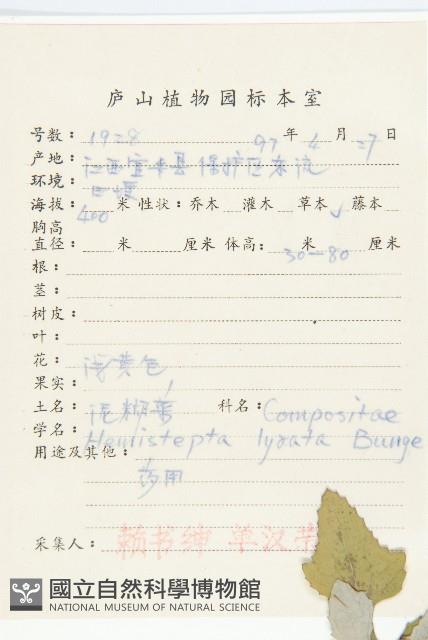 庐山植物园标本室
号数：1928 97年4月27日
产地：江西宜丰县保护区东流
环境：
海拔：400米 性状：乔木 灌木 草本✓ 藤本
胸高
直径： 米 厘米 体高：30—80米 厘米
根：
茎：
树皮：
叶：
花：浅黄色
果实：
土名：泥糊菜 科名：Compositae
学名：Hemistepta lyrata Bunge
用途及其他：
药用
采集人：赖书绅 单汉荣
國立自然科學博物館
NATIONAL MUSEUM OF NATURAL SCIENCE